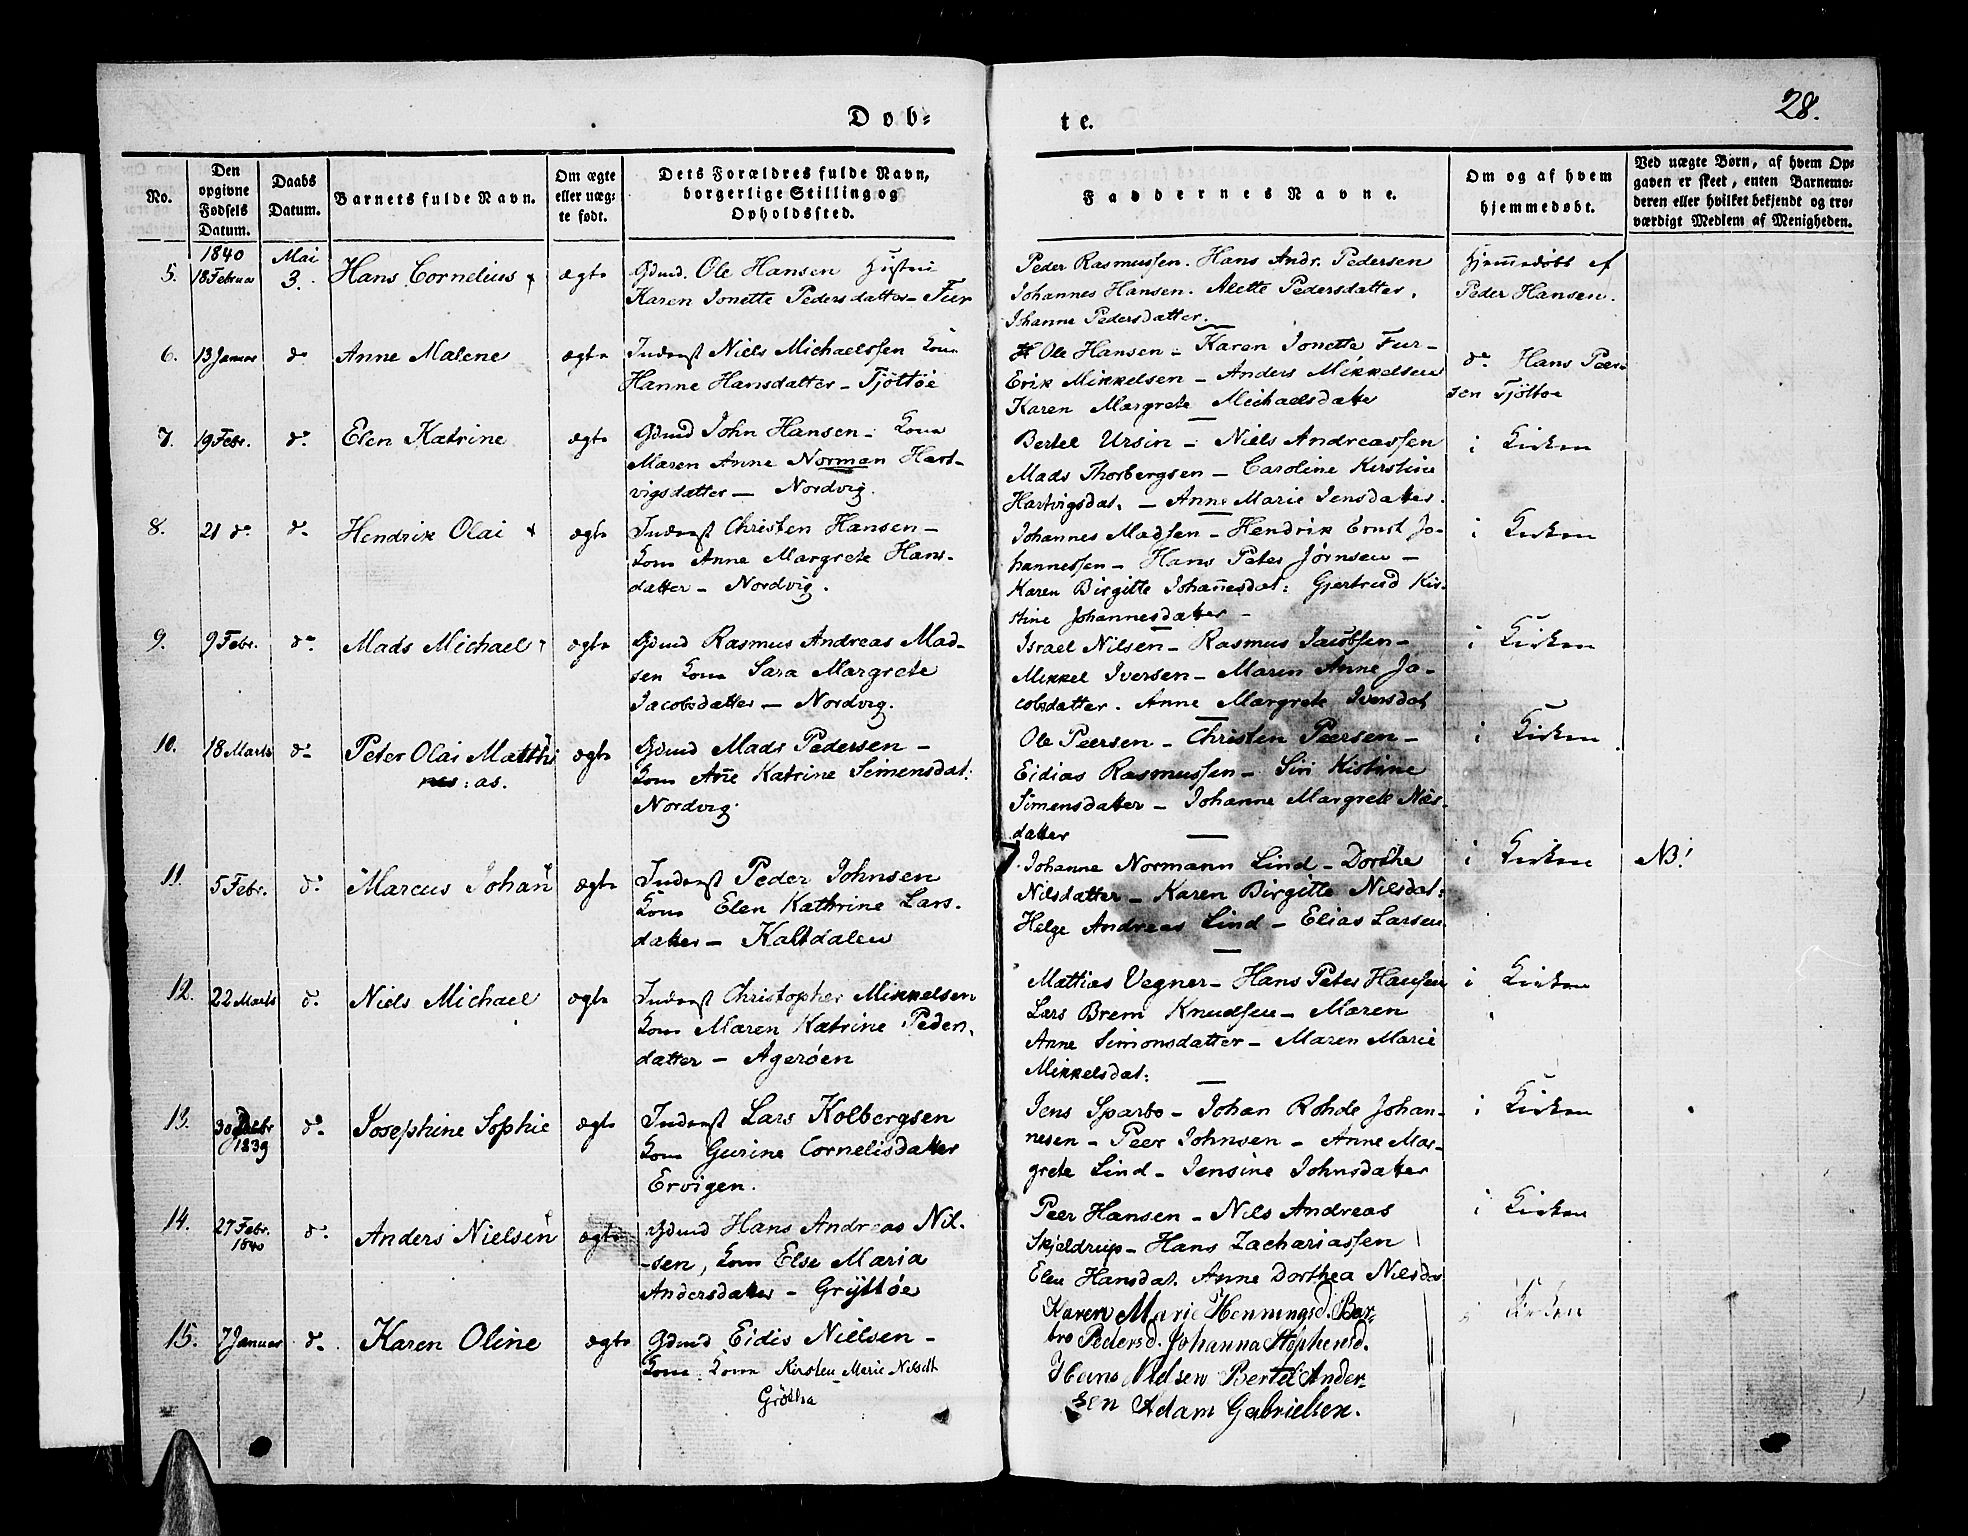 28.
Døb-
te.
No.
Den opgivne Fødsels Datum.
Daabs Datum.
Barnets fulde Navn.
Om ægte eller uægte født.
Dets Forældres fulde Navn, borgerlige Stilling og Opholdssted.
Faddernes Navne.
Om og af hvem hjemmedøbt.
Ved uægte Børn, af hvem Opgaven er skeet, enten Barnemoderen eller hvilket bekjendt og troværdigt Medlem af Menigheden.
1840
Mai
5. 18 Februar 3. Hans Cornelius ægte
Gdmd. Ole Hansen Hustru
Karen Jonette Pedersdatter - Fur
Peder Rasmussen. Hans Andr. Pedersen
Johannes Hansen. Alette Pedersdatter.
Johanne Pedersdatter.
Hjemmedøbt af
Peder Hansen.
6. 13 Januar do Anne Malene ægte
Inderst Niels Michaelssen Kone
Hanne Hansdatter - Tjøttøe
Ole Hansen - Karen Jonette Fur -
Erik Mikkelsen - Anders Mikkelsen
Karen Margrete Michaelsdatter
do Hans Peer-
sen Tjøttøe
7. 19 Febr. do Elen Katrine ægte
Gdmd John Hansen - Kone
Maren Anne Norman Hart-
vigsdatter - Nordvig.
Bertel Ursin - Niels Andreassen
Mads Thorbergsen - Caroline Kirstine
Hartvigsdat. - Anne Marie Jensdatter.
i Kirken
8. 21 do do Hendrik Olai ægte
Inderst Christen Hansen -
Kone Anne Margrete Hans-
datter - Nordvig.
Johannes Madsen - Hendrik Ernst Jo-
hannessen - Hans Peter Jørnsen -
Karen Birgitte Johannesdat: Gjertrud Kir-
stine Johannesdatter -
i Kirken
9. 9 Febr. do Mads Michael ægte
Gdmd Rasmus Andreas Mad-
sen Kone Sara Margrete
Jacobsdatter - Nordvig.
Israel Nilsen - Rasmus Jacobsen -
Mikkel Iversen - Maren Anne Ja-
cobsdatter. Anne Margrete Iversdat
i Kirken
10. 18 Marts do Peter Olai Matthi ægte
as.
Gdmd Mads Pedersen -
Kone Anne Katrine Simensdat:
Nordvig.
Ole Peersen - Christen Peersen -
Eidias Rasmussen - Siri Kistine
Simensdatter - Johanne Margrete Nils-
datter
i Kirken
11. 5 Febr. do Marcus Johan ægte
Inderst Peder Johnsen
Kone Elen Kathrine Lars-
datter - Kaltdalen
Johanne Normann Lind - Dorthe
Nilsdatter - Karen Birgitte Nilsdat:
Helge Andreas Lind - Elias Larsen
i Kirken NB!
12. 22 Marts do Niels Michael ægte
Inderst Christopher Mikkelsen
Kone Maren Katrine Peders-
datter - Agerøen
Mathias Vegner - Hans Peter Hansen
Lars Brem Knudsen - Maren
Anne Simonsdatter - Maren Marie
Mikkelsdat:
i Kirken
13. 30 1839 do Josephine Sophie ægte
Inderst Lars Kolbergsen
Kone Gurine Cornelisdatter
Ervigen.
Jens Sparbo - Johan Rohde Johan-
nesen - Peer Johnsen - Anne Mar-
grete Lind - Jensine Johnsdatter
i Kirken
14. 27 Febr. 1840 do Anders Nielsen ægte
Gdmd Hans Andreas Nil-
sen, Kone Else Maria
Andersdatter - Gryttøe
Peer Hansen - Nils Andreas
Skjeldrup - Hans Zachariassen
Elen Hansdat. Anne Dorthea Nilsdat
i Kirken
15. 7 Januar do Karen Oline ægte
Gdmd Eidis Nielsen -
Kone. Kone Kirsten Marie Nilsdt
Karen Marie Henningsd. Bar-
bro Pedersd. Johanna Stephensd.
Hans Nielsen Bertel Ander-
sen Adam Gabrielsen.
i Kirken